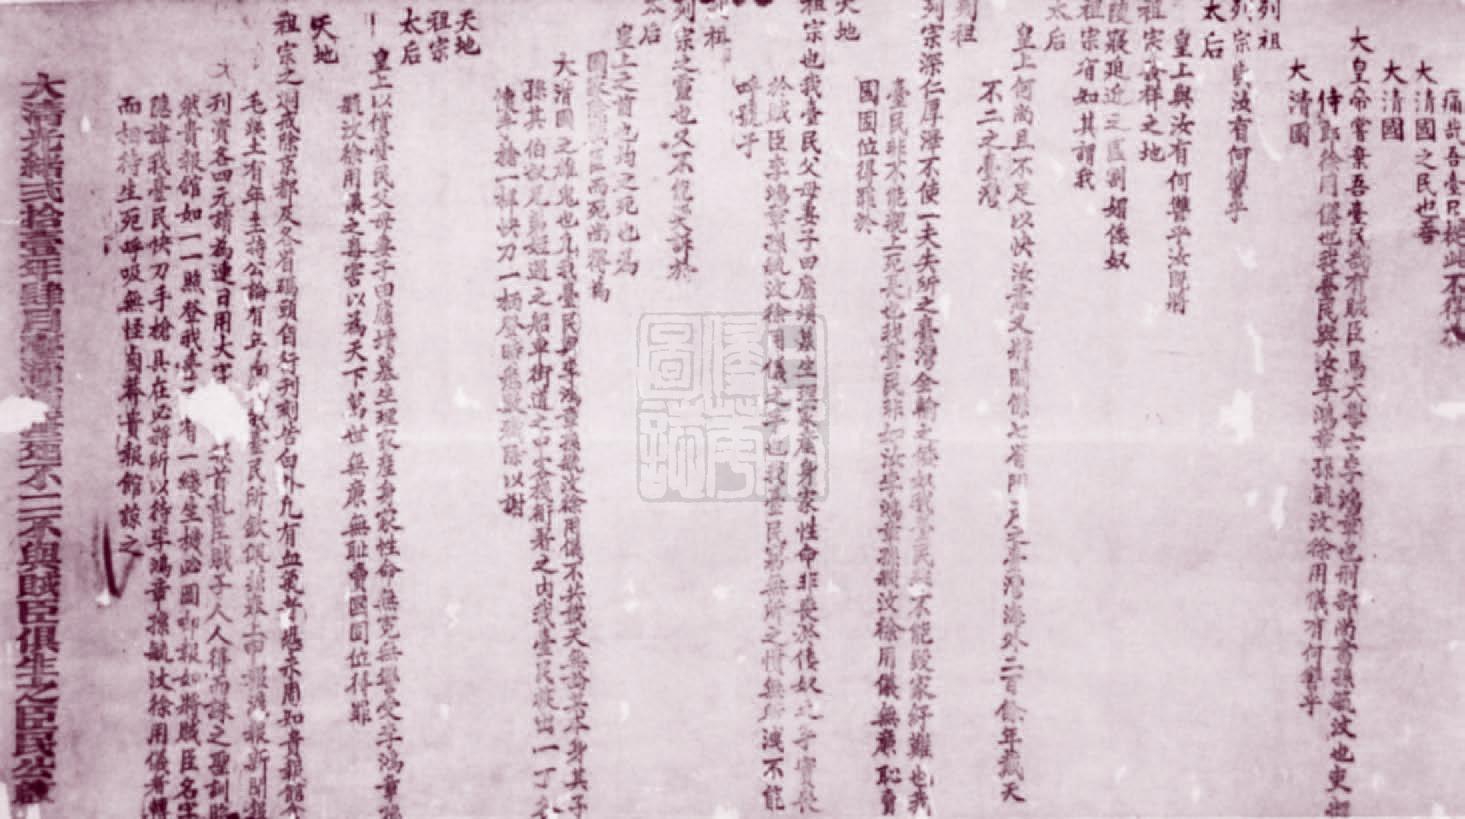 痛哉吾臺民從此不得為
大清國之民也吾
大清國
大皇帝嘗棄吾臺民哉有賊臣焉大學士李鴻章也刑部尚書孫毓汶也吏部
侍郎徐用儀也我臺民與汝李鴻章孫毓汶徐用儀有何讐乎
大清國
列祖
列宗與汝有何讐乎
太后
皇上與汝有何讐乎汝既將
祖宗發祥之地
陵寢迫近之區割媚倭奴
祖宗有知其謂我
太后
皇上何尚且不足以快汝意又將關係七省門戶之臺灣海外二百餘年戴天
不二之臺灣
列祖
列宗深仁厚澤不使一夫失所之臺灣全輸之倭奴我臺民 不能毀家紓難也我
臺民非不能親上死長也我臺民非如汝李鴻章孫毓汶徐用儀無廉恥賣
國固位得罪於
天地
祖宗也我臺民父母妻子田廬墳墓生理家產身家性命非喪於倭奴之手實喪
於賊臣李鴻章孫毓汶徐用儀之手也我臺民窮無所之憤無所洩不能
呼號于
列祖
列宗之靈也又不能哭訴於
太后
皇上之前也均之死也為
國家除賊臣而死尚得為
大清國之雄鬼也矣我臺民與李鴻章孫毓汶徐用儀不共戴天無論其本身其子
孫其伯叔兄弟姪遇之船車街道之中客棧衙署之內我臺民族出一丁各
懷手槍一桿快刀一柄登時悉數殲除以謝
天地
祖宗
太后
皇上以償臺民父母妻子田廬墳墓生理家產身家性命無冤無讐受李鴻章孫
毓汶徐用儀之毒害以為天下萬世無廉無恥賣國固位得罪
天地
祖宗之炯戒除京都及各省碼頭自行刊刻告白外凡有血氣者 未用知貴報館食
毛踐土有年主持公論有年 臺民所欽佩 上申報滬報新聞報
刊資各四元請為連日用大字 首乱臣賊子人人得而誅之聖訓昭
然貴報館如一一照登我臺 有一綫生機必圖啣報如將賊臣名字
隱諱我臺民快刀手槍具在必將所以待李鴻章孫毓汶徐用儀者轉
而相待生死呼吸無怪鹵莽貴報館諒之
大清光緒貳拾壹年肆月臺灣 不二不與賊臣俱生之臣民公啟